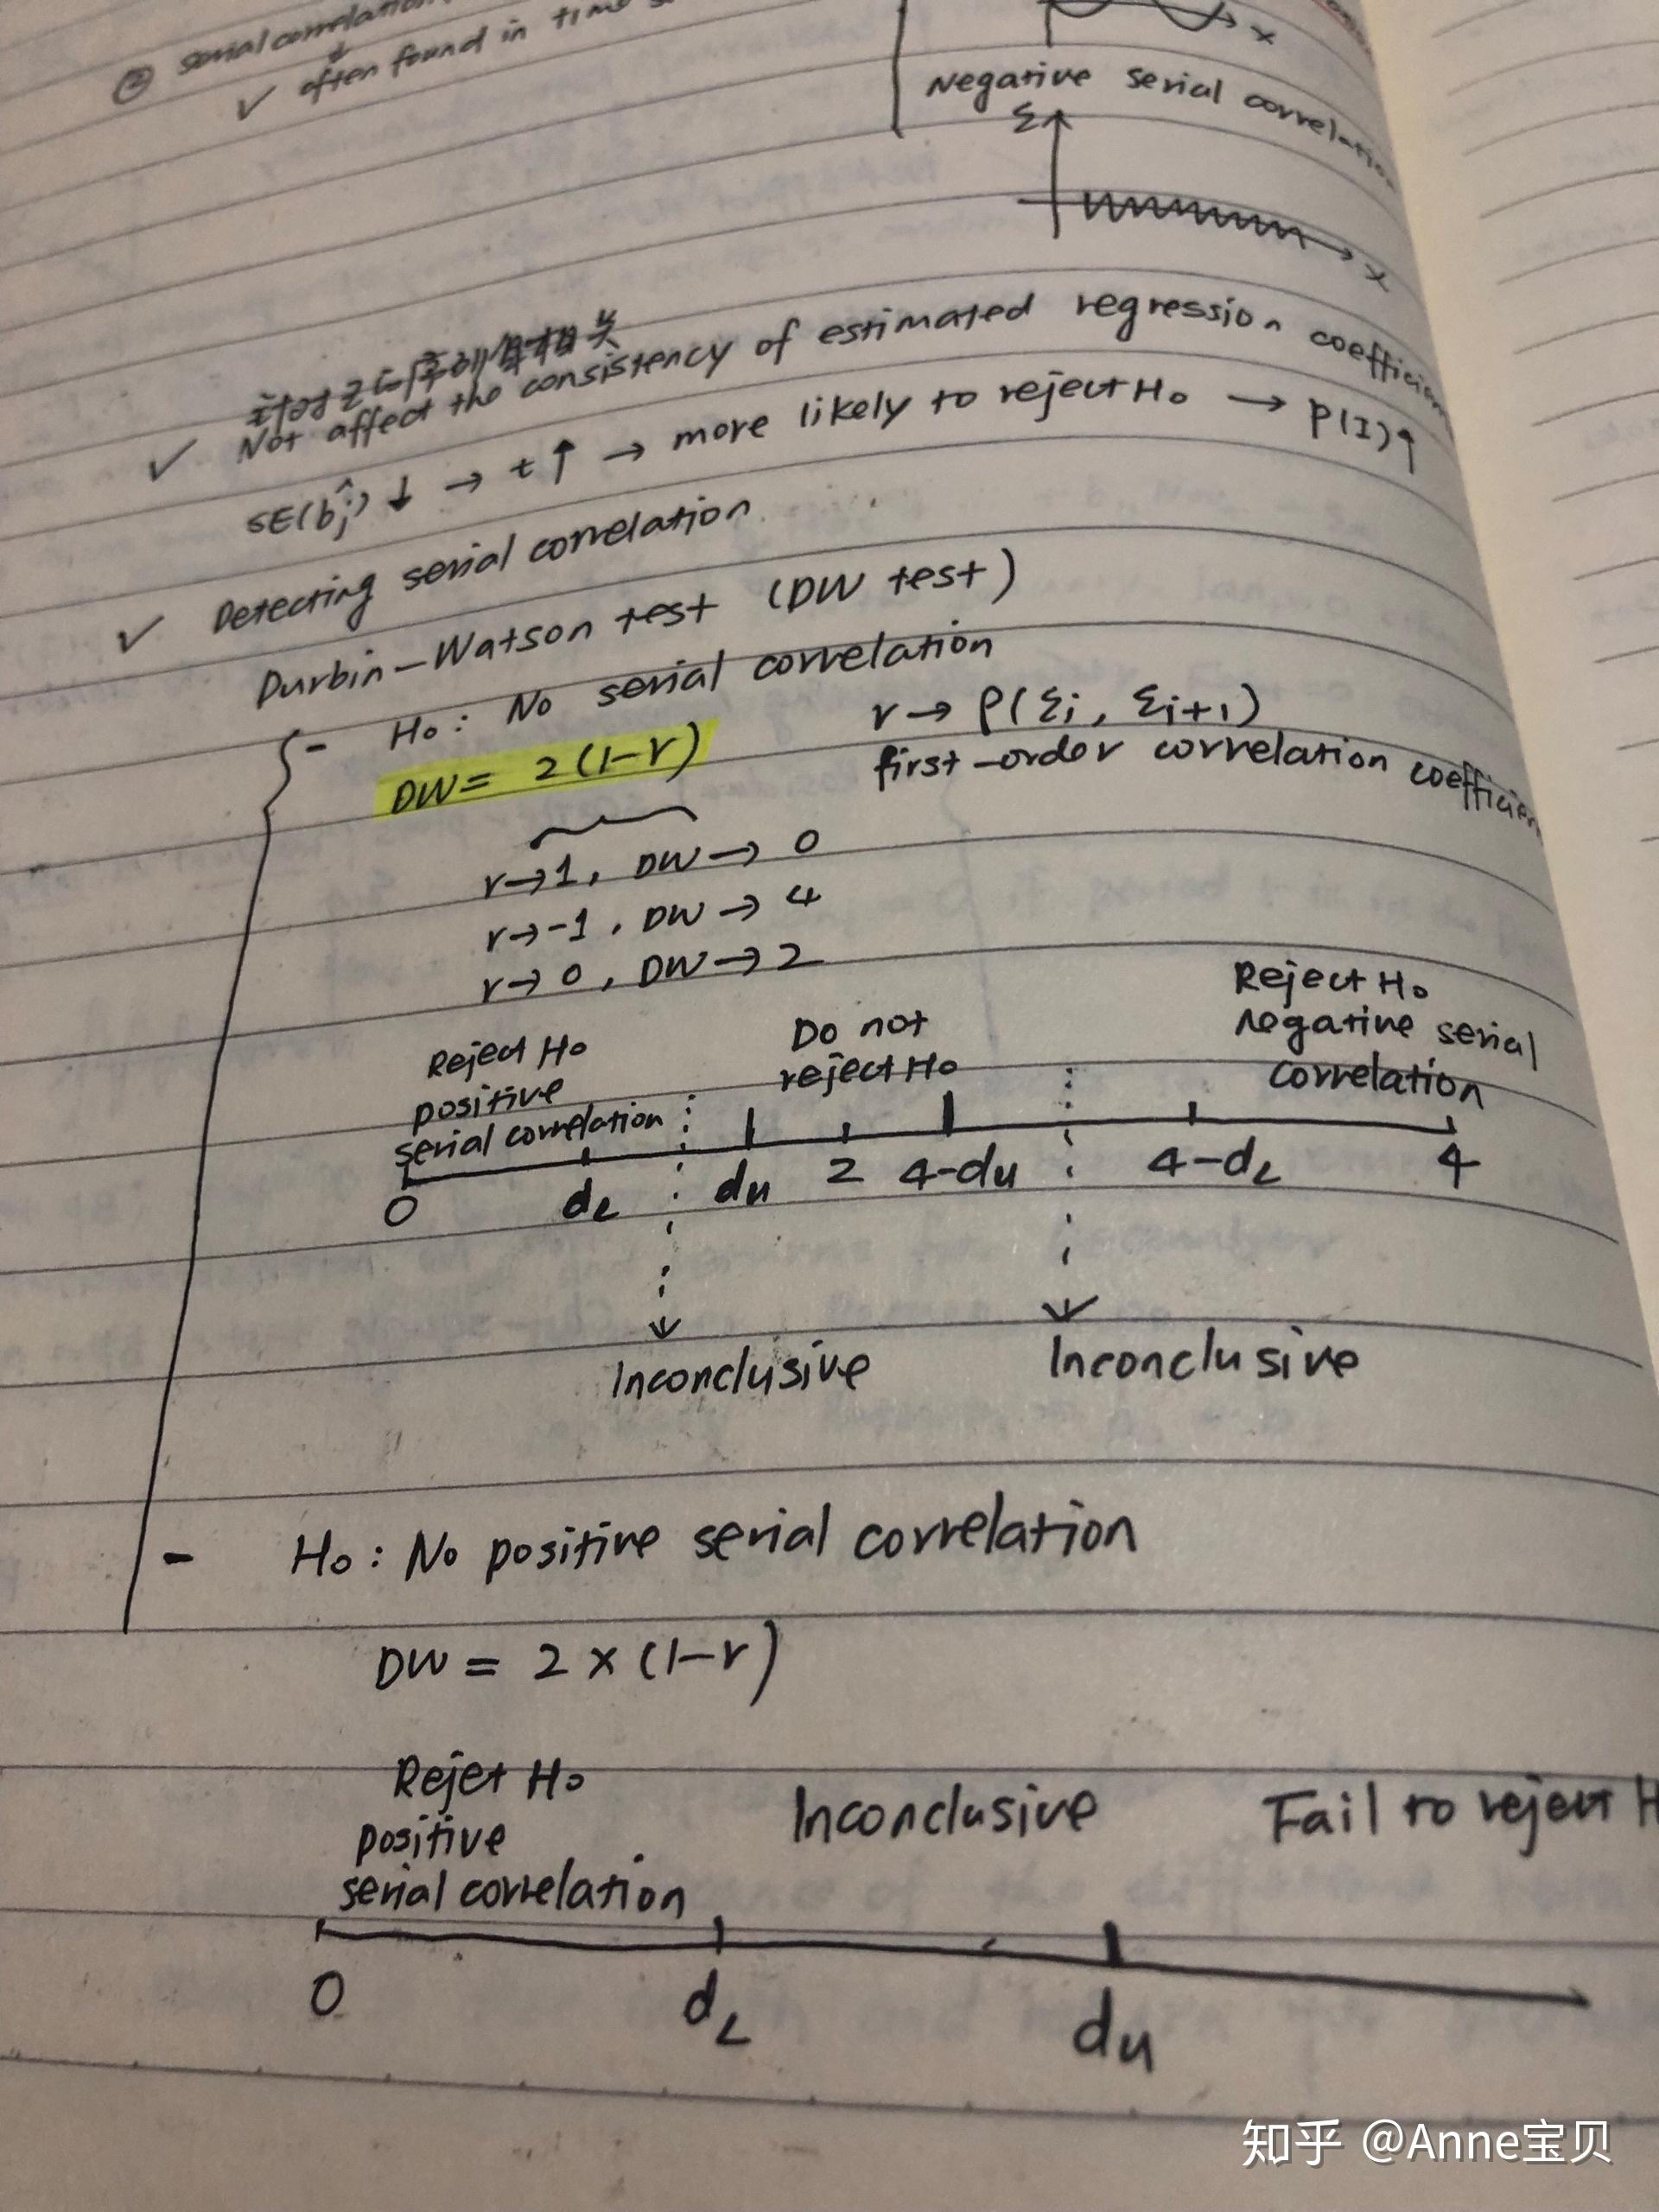 ② serial correlation
✓ often found in time
x
Negative serial correlation
ε
x
针对正序列自相关
✓ Not affect the consistency of estimated regression coefficien
SE(b̂j) ↓ → t ↑ → more likely to reject H₀ → P(I)↑
✓ Detecting serial correlation
Durbin-Watson test (DW test)
- H₀: No serial correlation
DW = 2(1-r)
r → ρ(εi, εi+1)
first-order correlation coefficien
r→1, DW→0
r→-1, DW→4
r→0, DW→2
Reject H₀
positive
serial correlation
Do not
reject H₀
Reject H₀
negative serial
correlation
0 dL du 2 4-du 4-dL 4
Inconclusive Inconclusive
- H₀: No positive serial correlation
DW = 2×(1-r)
Rejet H₀
positive
serial correlation
Inconclusive
Fail to reject H
0 dL du
知乎 @Anne宝贝